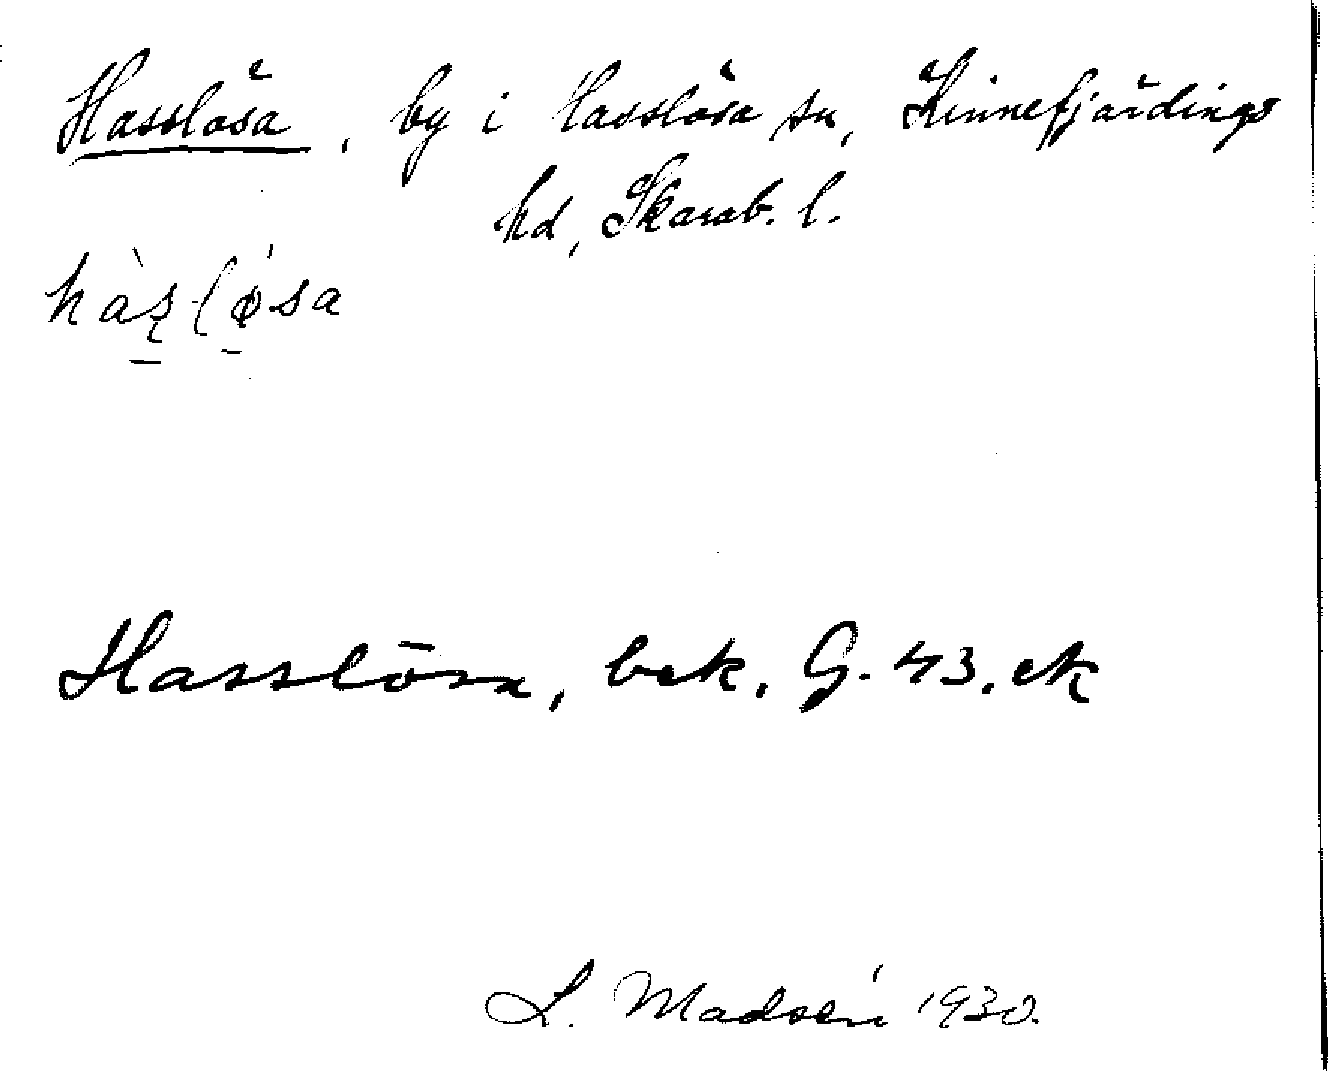 Hasslösa, by i Hasslösa sn, Kinnefjärdings
hd, Skarab. l.
hàʂlǿsa
Hasslösa, bek. G. 43. ek
L. Madsén 1930.